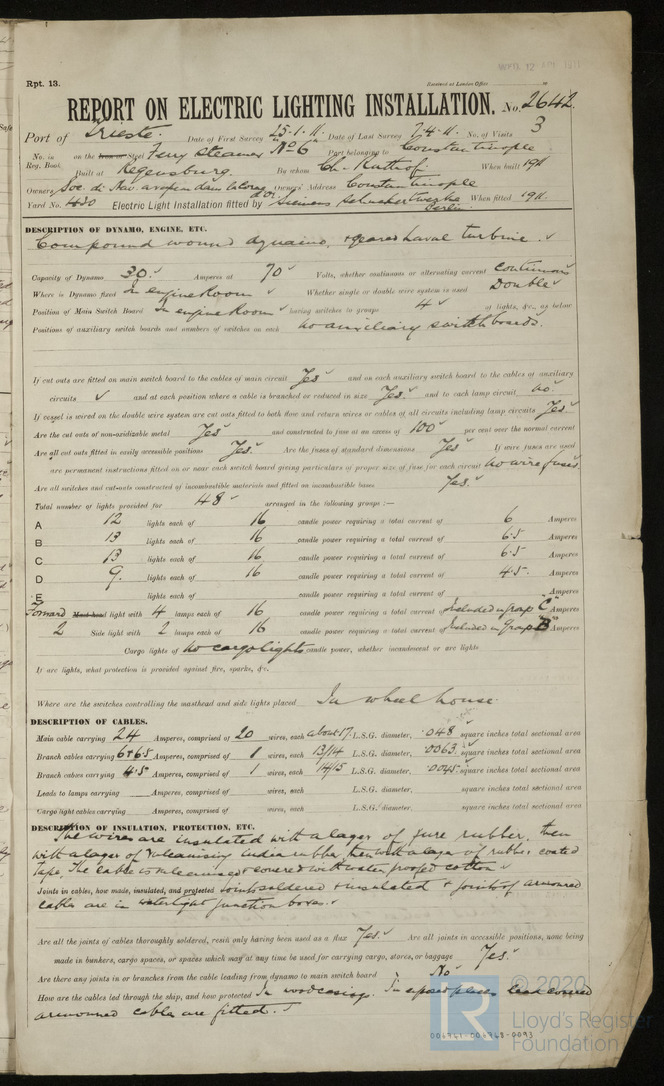 WED. 12 APR 1911
Rpt. 13.
Received at London Office
REPORT ON ELECTRIC LIGHTING INSTALLATION. No. 2642.
Port of Trieste. Date of First Survey 25.1.11. Date of Last Survey 7.4.11. No. of Visits 3
No. in Reg. Book. on the Iron or Steel Ferry Steamer "No 6" Port belonging to Constantinople
Built at Regensburg. By whom Ch. Ruthof. When built 1911
Owners Soc. di Nav. Owners' Address Constantinople
Yard No. 430 Electric Light Installation fitted by Siemens Schuckertwerke Berlin. When fitted 1911.
DESCRIPTION OF DYNAMO, ENGINE, ETC.
Compound wound dynamo, & geared Laval turbine.
Capacity of Dynamo 30. Amperes at 70 Volts, whether continuous or alternating current continuous
Where is Dynamo fixed In engine Room Whether single or double wire system is used Double
Position of Main Switch Board In engine Room having switches to groups 4 of lights, &c., as below
Positions of auxiliary switch boards and numbers of switches on each no auxiliary switchboards.
If cut outs are fitted on main switch board to the cables of main circuit Yes and on each auxiliary switch board to the cables of auxiliary
circuits and at each position where a cable is branched or reduced in size Yes and to each lamp circuit no.
If vessel is wired on the double wire system are cut outs fitted to both flow and return wires or cables of all circuits including lamp circuits Yes.
Are the cut outs of non-oxidizable metal Yes and constructed to fuse at an excess of 100 per cent over the normal current
Are all cut outs fitted in easily accessible positions Yes. Are the fuses of standard dimensions Yes If wire fuses are used
are permanent instructions fitted on or near each switch board giving particulars of proper size of fuse for each circuit No wire fuses
Are all switches and cut-outs constructed of incombustible materials and fitted on incombustible bases Yes.
Total number of lights provided for 48 arranged in the following groups :—
A 12 lights each of 16 candle power requiring a total current of 6 Amperes
B 13 lights each of 16 candle power requiring a total current of 6.5 Amperes
C 13 lights each of 16 candle power requiring a total current of 6.5 Amperes
D 9. lights each of 16 candle power requiring a total current of 4.5. Amperes
E lights each of candle power requiring a total current of Amperes
Forward Mast head light with 4 lamps each of 16 candle power requiring a total current of Included in group "C" Amperes
2 Side light with 2 lamps each of 16 candle power requiring a total current of Included in Group "B" Amperes
Cargo lights of No cargo lights candle power, whether incandescent or arc lights
If arc lights, what protection is provided against fire, sparks, &c.
Where are the switches controlling the masthead and side lights placed In wheel house
DESCRIPTION OF CABLES.
Main cable carrying 24 Amperes, comprised of 20 wires, each about 17 L.S.G. diameter, .048 square inches total sectional area
Branch cables carrying 6 & 6.5 Amperes, comprised of 1 wires, each 13/14 L.S.G. diameter, .0063 square inches total sectional area
Branch cables carrying 4.5 Amperes, comprised of 1 wires, each 14/15 L.S.G. diameter, .0045 square inches total sectional area
Leads to lamps carrying Amperes, comprised of wires, each L.S.G. diameter, square inches total sectional area
Cargo light cables carrying Amperes, comprised of wires, each L.S.G. diameter, square inches total sectional area
DESCRIPTION OF INSULATION, PROTECTION, ETC.
The wires are insulated with a layer of pure rubber. then
with a layer of vulcanising India rubber, then with a layer of rubber coated
tape, The cable is vulcanised & covered with water proofed cotton
Joints in cables, how made, insulated, and protected Joints soldered & insulated & joints of armoured
cables are in watertight junction boxes.
Are all the joints of cables thoroughly soldered, resin only having been used as a flux Yes. Are all joints in accessible positions, none being
made in bunkers, cargo spaces, or spaces which may at any time be used for carrying cargo, stores, or baggage Yes.
Are there any joints in or branches from the cable leading from dynamo to main switch board No
How are the cables led through the ship, and how protected In wood casings. In exposed places lead covered
armoured cables are fitted.
006961-006968-0093
© 2020
LR
Lloyd's Register
Foundation